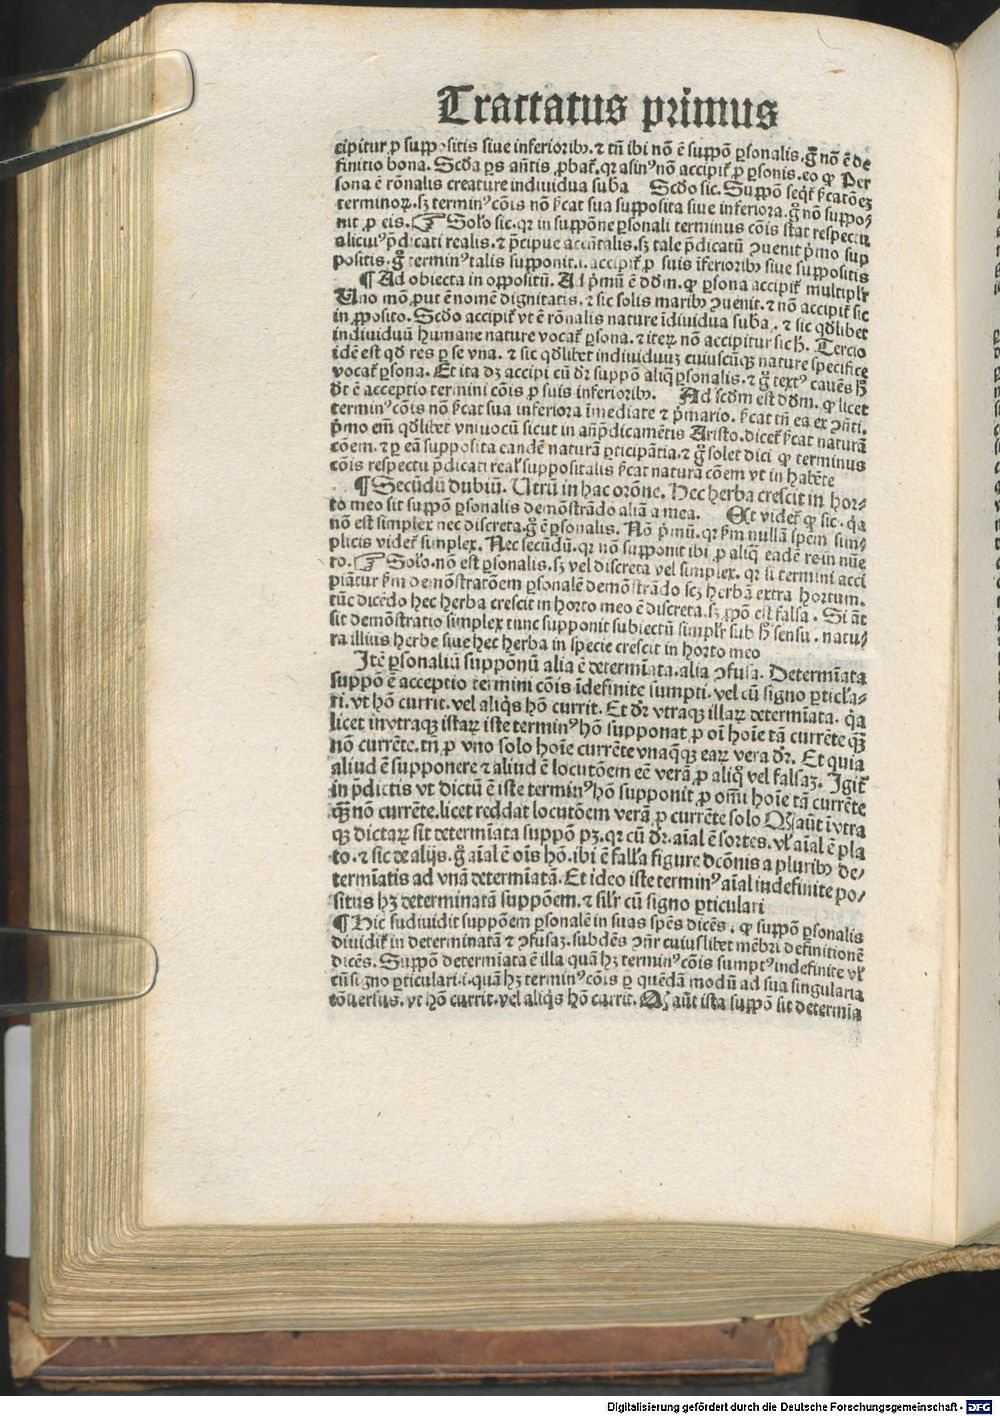 Tractatus primus
cipitur ꝓ suppositis siue inferioribꝰ. ⁊ tñ ibi nō ē suppō ꝑsonalis. gͦ nō ē de
finitio bona. Scd̄a ꝑs añtis ꝓbat᷑. qꝛ asinꝰ nō accipit᷑ ꝓ ꝑsonis. eo ꝙ Per
sona ē rōnalis creature indiuidua suba Scd̄o sic. Suppō seqt᷑ ſ̄catōeꝫ
terminoꝝ. sꝫ terminꝰ cōis nō ſ̄cat sua supposita siue inferiora. gͦ nō suppo⸗
nit ꝓ eis. ☞ Solo sic. qꝛ in suppōne ꝑsonali terminus cōis stat respectu
alicuiꝰ p̄dicati realis. ⁊ p̄cipue accn̄talis. sꝫ tale p̄dicatū ꝯuenit p̄mo sup
positis. gͦ terminꝰ talis supponit. i. accipit᷑ ꝓ suis īferioribꝰ siue suppositis
¶ Ad obiecta in oppositū. Ad p̄mū ē dd̄m. ꝙ ꝑsona accipit᷑ multiplr̄
Uno mō. put ē nomē dignitatis. ⁊ sic solis maribꝰ ꝯuenit. ⁊ nō accipit᷑ sic
in ꝓposito. Scd̄o accipit᷑ vt ē rōnalis nature īdiuidua suba. ⁊ sic qd̄libet
indiuiduū humane nature vocat᷑ ꝑsona. ⁊ iteꝝ nō accipitur sic h̄. Tercio
idē est qd̄ res ꝑ se vna. ⁊ sic qd̄libet indiuiduuꝫ cuiuscūqꝫ nature specifice
vocat᷑ ꝑsona. Et ita dꝫ accipi cū dr̄ suppō aliq̄ ꝑsonalis. ⁊ gͦ textꝰ cauēs h̄
dt ē acceptio termini cōis ꝓ suis inferioribꝰ. Ad scd̄m est dd̄m. ꝙ licet
terminꝰ cōis nō ſ̄cat sua inferiora īmediate ⁊ p̄mario. ſ̄cat tn̄ ea ex ꝯn̄ti.
p̄mo em̄ qd̄libet vniuocū sicut in an̄p̄dicamētis Aristo. dicet᷑ ſ̄cat naturā
cōem. ⁊ ꝑ eā supposita eandē naturā ꝑticipātia. ⁊ gͦ solet dici ꝙ terminus
cōis respectu p̄dicati real᷑ suppositalis ſ̄cat naturā cōem vt in habēte
¶ Secūdū dubiū. Utrū in hac orōne. Hec herba crescit in hor⸗
to meo sit suppō ꝑsonalis demōstrādo aliā a mea. Et videt᷑ ꝙ sic. q̄a
nō est simplex nec discreta. gͦ ē ꝑsonalis. Nō p̄mū. qꝛ ẜm nullā spēm sim⸗
plicis videt᷑ simplex. Nec secūdū. qꝛ nō supponit ibi ꝓ aliq̄ eadē re in nūe
ro. ☞ Solo. nō est ꝑsonalis. sꝫ vel discreta vel simplex. qꝛ si termini acci
piātur ẜm demōstratōem ꝑsonalē demōstrādo scꝫ herbā extra hortum.
tūc dicēdo hec herba crescit in horto meo ē discreta. sꝫ ꝓpō est falsa. Si āt
sit demōstratio simplex tunc supponit subiectū simplr̄ sub h̄ sensu. natu⸗
ra illius herbe siue hec herba in specie crescit in horto meo
Itē ꝑsonaliū suppōnū alia ē determīata. alia ꝯfusa. Determīata
suppō ē acceptio termini cōis īdefinite sumpti. vel cū signo ꝑticl̄a⸗
ri. vt hō currit. vel aliq̄s hō currit. Et dr̄ vtraqꝫ illaꝝ determīata. q̄a
licet in vtraqꝫ istaꝝ iste terminꝰ hō supponat ꝓ oī hoīe tā currēte qꝫ̄
nō currēte. tn̄ ꝓ vno solo hoīe currēte vnaq̄qꝫ eaꝝ vera dr̄. Et quia
aliud ē supponere ⁊ aliud ē locutōem eē verā ꝓ aliqͦ vel falsaꝫ. Igit᷑
in p̄dictis vt dictū ē iste terminꝰ hō supponit ꝓ omī hoīe tā currēte
qꝫ̄ nō currēte. licet reddat locutōem verā ꝓ currēte solo Qꝫ aūt īvtra
qꝫ dictaꝝ sit determīata suppō pꝫ. qꝛ cū dr̄. aīal ē sortes. vl᷑ aīal ē pla
to. ⁊ sic de alijs. gͦ aīal ē oīs hō. ibi ē fall̄a figure dcōnis a pluribꝰ de⸗
termīatis ad vnā determīatā. Et ideo iste terminꝰ aīal indefinite po⸗
situs hꝫ determinatā suppōem. ⁊ silr̄ cū signo ꝑticulari
¶ Hic sudiuidit suppōem ꝑsonalē in suas spēs dicēs. ꝙ suppō ꝑsonalis
diuidit᷑ in determinatā ⁊ ꝯfusaꝫ. subdēs ꝯn̄r cuiuslibet mēbri definitionē
dicēs. Suppō determīata ē illa quā hꝫ terminꝰ cōis sumptꝰ indefinite vl᷑
cū signo ꝑticulari. i. quā hꝫ terminꝰ cōis ꝑ quēdā modū ad sua singularia
cōuersus. vt hō currit. vel aliq̄s hō currit. Qꝫ aūt ista suppō sit determīa
Digitalisierung gefördert durch die Deutsche Forschungsgemeinschaft - DFG